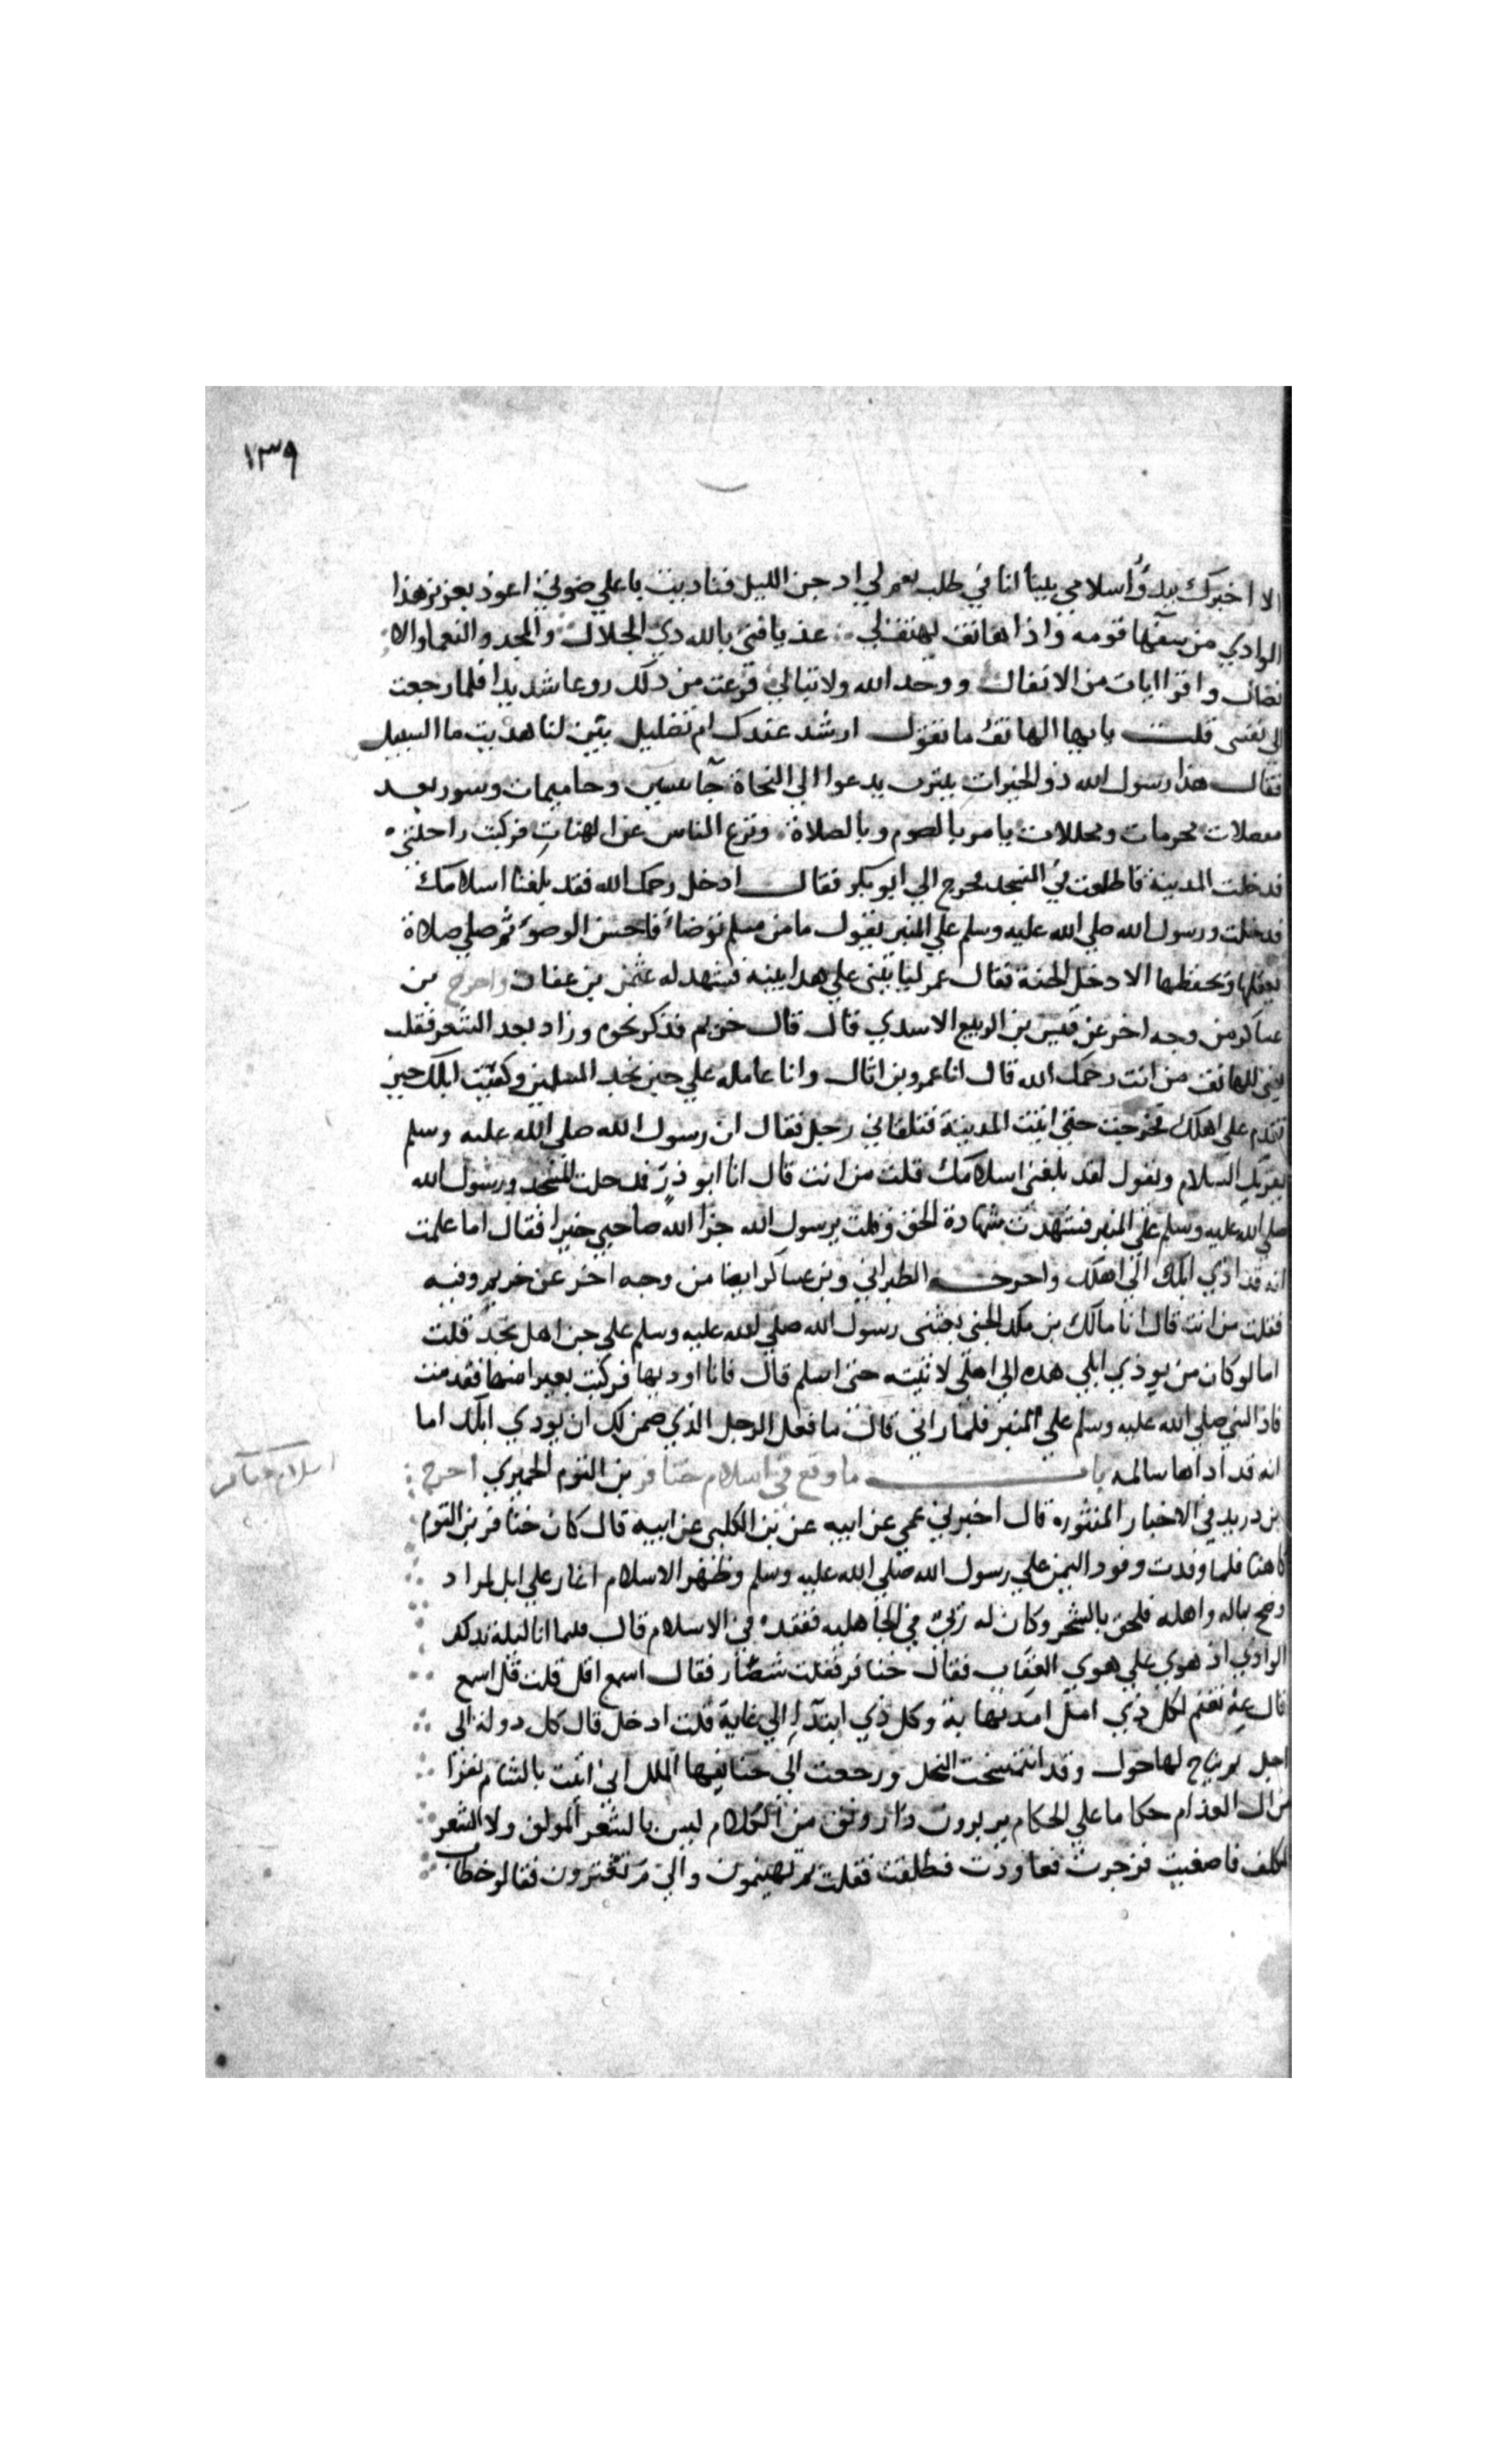 ١٣٩
الا اخبرك ببدؤ اسلامي بينا انا في طلب نعم لي اذ جن الليل فناديت باعلي صوتي اعوذ بعزيز هذا
الوادي من سفهآ قومه واذا هاتف يهتف بي عذ يا فتى بالله ذي الجلال والمجد والنعما والا
فضال واقرا ايات من الانفال ووحد الله ولا تبالي فرعت من ذلك روعا شديدا فلما رجعت
الي نفسى قلت يا ايها الهاتف ما تقول ارشد عندك ام تضليل بين لنا هديت ما السبيل
فقال هذا رسول الله ذو الخيرات بيثرب يدعوا الي النجاة جآ بيسين وحاميمات وسور بعد
مفصلات محرمات ومحللات يامر بالصوم وبالصلاة ويزع الناس عن الهنات فركبت راحلتي
فدخلت المدينة فاطلعت في المسجد فخرج الي ابو بكر فقال ادخل رحمك الله فقد بلغنا اسلامك
فدخلت ورسول الله صلي الله عليه وسلم علي المنبر يقول ما من مسلم توضأ فاحسن الوضوء ثم صلي صلاة
يعقلها ويحفظها الا دخل الجنة فقال عمر لياتينى علي هذا ببينة فشهد له عثمن بن عفان واخرج بن
عساكر من وجه اخر عن قيس بن الربيع الاسدي قال قال خريم فذكر نحوه وزاد بعد الشعر فقلت
للهاتف من انت رحمك الله قال انا عمرو بن اثال وانا عامله علي جن نجد المسلمين وكفيت ابلك حتي
تقدم علي اهلك فخرجت حتي اتيت المدينة فتلقاني رجل فقال ان رسول الله صلي الله عليه وسلم
يقريك السلام ويقول لقد بلغني اسلامك قلت من انت قال انا ابو ذر فدخلت المسجد ورسول الله
صلي الله عليه وسلم علي المنبر فشهدت شهادة الحق وقلت يرسول الله جزا الله صاحبي خيرا فقال اما علمت
انه قد ادي ابلك الي اهلك واخرج الطبراني وبن عساكر ايضا من وجه اخر عن خريم وفيه
فقلت من انت قال انا مالك بن مالك الجني بعثني رسول الله صلي الله عليه وسلم علي جن اهل نجد قلت
اما لو كان من يودي ابلي هذه الي اهلي لاتيته حتي اسلم قال فانا اوديها فركبت بعيرا منها فقدمت
فاذا النبي صلي الله عليه وسلم علي المنبر فلما راني قال ما فعل الرجل الذي ضمن لك ان يودي ابلك اما
انه قد اداها سالمه باب ما وقع في اسلام خنافر بن التوم الحميري اخرج
اسلام خنافر
بن دريد في الاخبار المنثوره قال اخبرني عمي عن ابيه عن بن الكلبي عن ابيه قال كان خنافر بن التوم
كاهنا فلما وفدت وفود اليمن علي رسول الله صلي الله عليه وسلم وظهر الاسلام اغار علي ابل لمراد
وخرج بماله واهله فلحق بالشحر وكان له رئي في الجاهليه ففقده في الاسلام قال فلما انا ليلة بذلك
الوادي اذ هوي علي هوي العقاب فقال خنافر فقلت شصار فقال اسمع اقل قلت قل اسمع
قال عه تغنم لكل ذي امد نهاية وكل ذي ابتدآ الي غاية قلت اجل قال كل دولة الي
اجل ثم يتاح لها حول وقد انتسخت النحل ورجعت الي حقايقها الملل اني اتيت بالشام نفرا
من ال العذام حكاما علي الحكام يزبرون ذا رونق من الكلام ليس بالشعر المولف ولا الشعر
المكلف فاصغيت فزجرت فعاودت فطلفت فقلت بم تهينمون والي م تعتزون فقالو خطاب